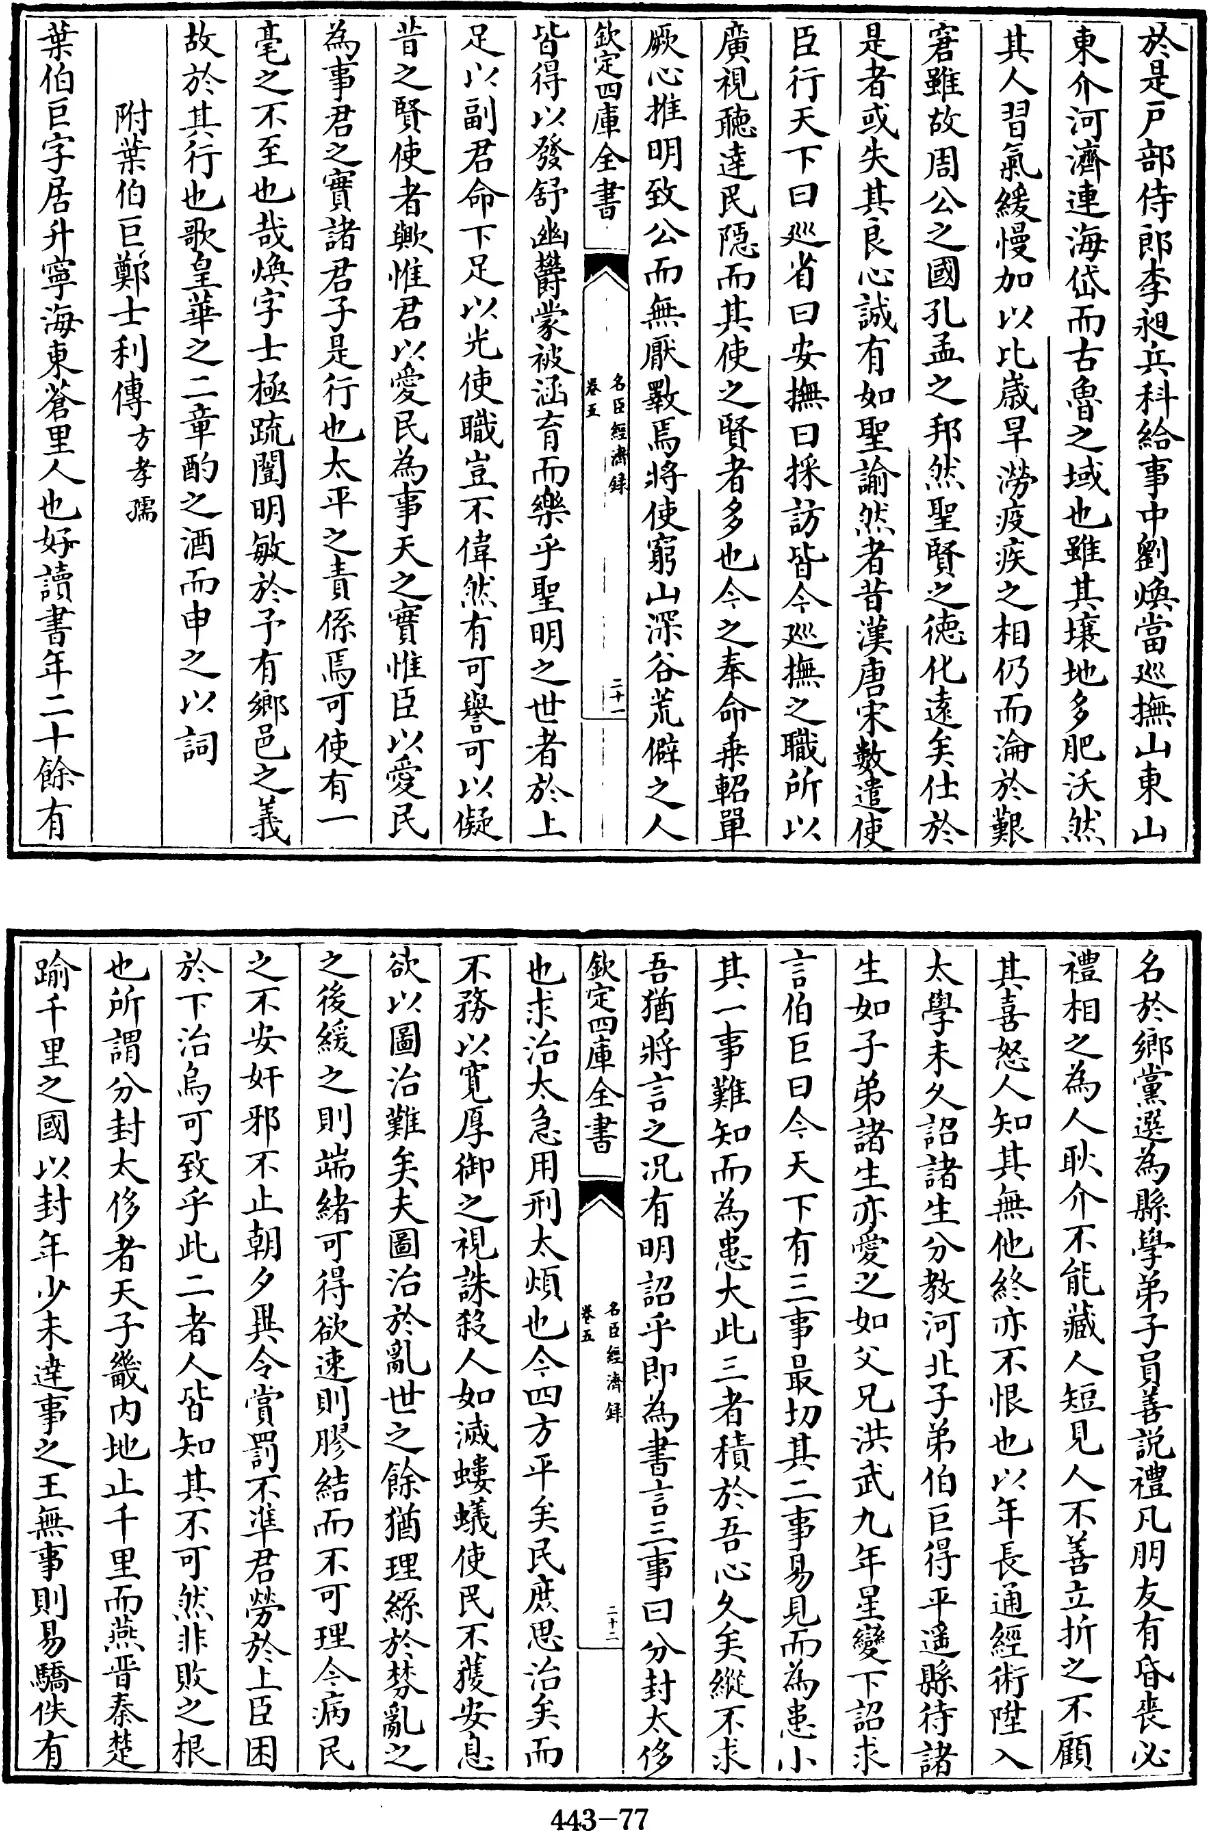 於是戸部侍郎李昶兵科給事中劉煥當廵撫山東山
東介河濟連海岱而古魯之域也雖其壤地多肥沃然
其人習氣緩慢加以比歲旱澇疫疾之相仍而淪於艱
窘雖故周公之國孔孟之邦然聖賢之徳化遠矣仕於
是者或失其良心誠有如聖諭然者昔漢唐宋數遣使
臣行天下曰廵省曰安撫曰採訪皆今廵撫之職所以
廣視聽達民隱而其使之賢者多也今之奉命乗軺單
厥心推明致公而無厭斁焉將使窮山深谷荒僻之人
欽定四庫全書
名臣經濟録
卷五
二十一
皆得以發舒幽鬱蒙被涵育而樂乎聖明之世者於上
足以副君命下足以光使職豈不偉然有可譽可以儗
昔之賢使者歟惟君以愛民為事天之實惟臣以愛民
為事君之實諸君子是行也太平之責係焉可使有一
毫之不至也哉煥字士極疏闓明敏於予有鄉邑之義
故於其行也歌皇華之二章酌之酒而申之以詞
附葉伯巨鄭士利傳方孝孺
葉伯巨字居升寧海東蒼里人也好讀書年二十餘有
名於鄉黨選為縣學弟子員善説禮凡朋友有昏喪必
禮相之為人耿介不能藏人短見人不善立折之不顧
其喜怒人知其無他終亦不恨也以年長通經術陞入
太學未久詔諸生分教河北子弟伯巨得平遙縣待諸
生如子弟諸生亦愛之如父兄洪武九年星變下詔求
言伯巨曰今天下有三事最切其二事易見而為患小
其一事難知而為患大此三者積於吾心久矣縱不求
吾猶將言之况有明詔乎即為書言三事曰分封太侈
欽定四庫全書
名臣經濟録
卷五
二十二
也求治太急用刑太煩也今四方平矣民庶思治矣而
不務以寛厚御之視誅殺人如滅螻蟻使民不獲安息
欲以圖治難矣夫圖治於亂世之餘猶理絲於棼亂之
之後緩之則端緒可得欲速則膠結而不可理今病民
之不安奸邪不止朝夕異令賞罰不準君勞於上臣困
於下治烏可致乎此二者人皆知其不可然非敗之根
也所謂分封太侈者天子畿内地止千里而燕晋秦楚
踰千里之國以封年少未達事之王無事則易驕佚有
443-77